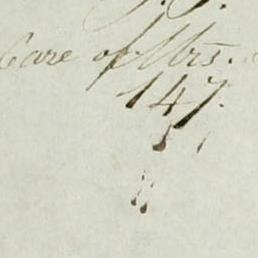 Care of Mrs.
147.